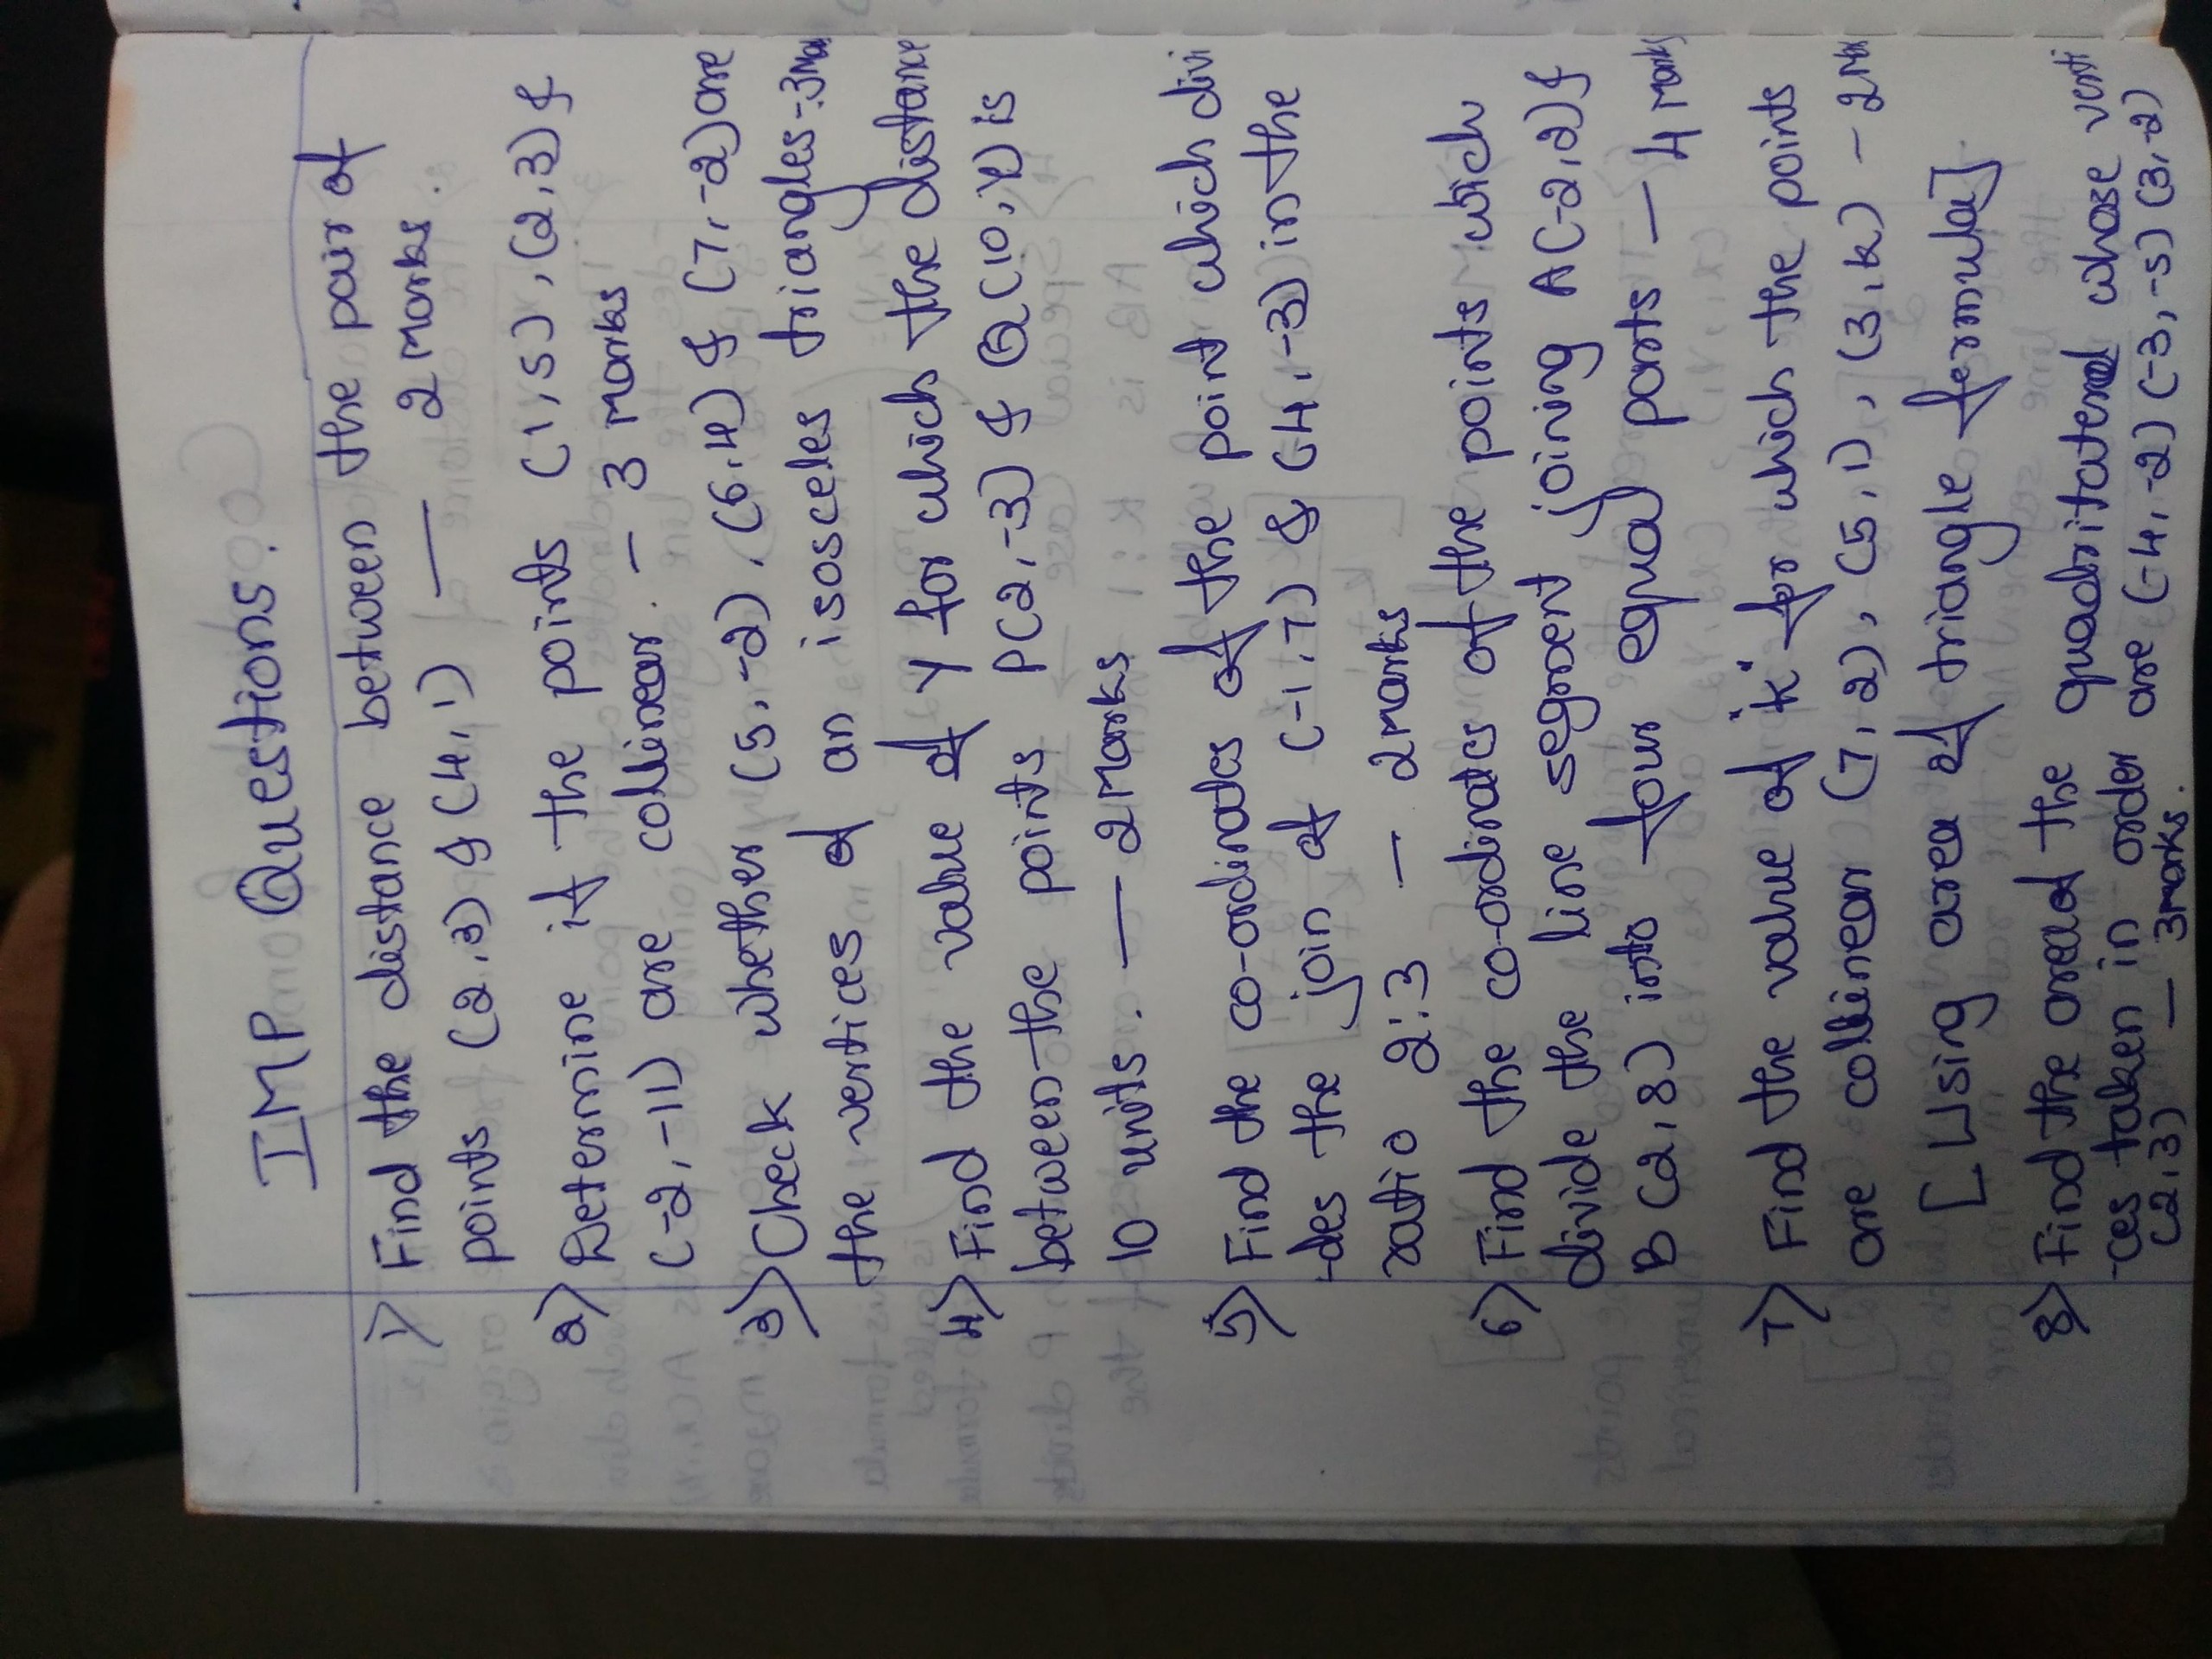 IMP Questions.
1) Find the distance between the pair of
points (2,3) & (4,1) — 2 marks
2) Determine if the points (1,5), (2,3) &
(-2,-11) are collinear. — 3 marks
3) Check whether (5,-2), (6,4) & (7,-2) are
the vertices of an isosceles triangles -3Ma
4) Find the value of y for which the distance
between the points P(2,-3) & Q(10,y) is
10 units. — 2 marks
5) Find the co-ordinates of the point which divi
-des the join of (-1,7) & (4,-3) in the
ratio 2:3 — 2 marks
6) Find the co-ordinates of the points which
divide the line segment joining A(-2,2) &
B(2,8) into four equal parts — 4 marks
7) Find the value of "k" for which the points
are collinear (7,-2), (5,1), (3,k) - 2 Ma
[Using area of triangle formula]
8) Find the area of the quadrilateral whose verti
-ces taken in order are (-4,-2) (-3,-5) (3,-2)
(2,3) — 3marks.